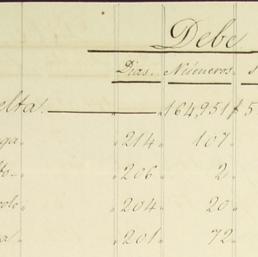 Debe
Dias. Números. s
elta. 164,951 5
ga. 214. 107.
to. 206. 2.
ole. 204. 20.
a. 201. 72.